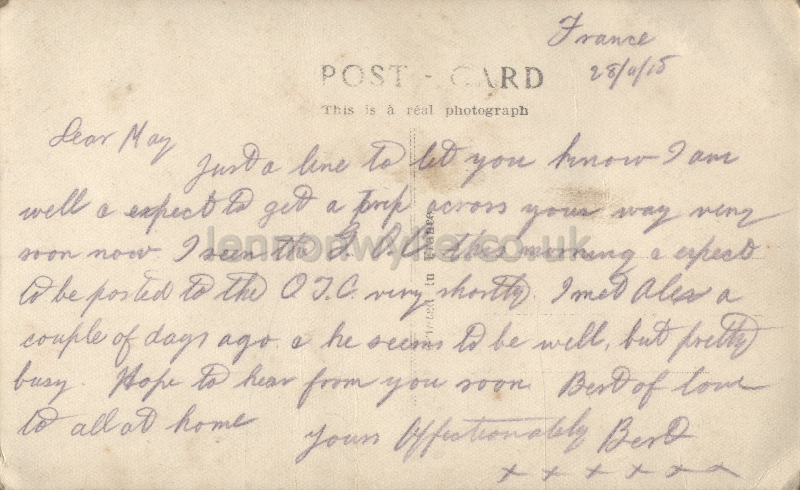 France
28/11/15
POST - CARD
This is a réal photograph
Dear May
Just a line to let you know I am
well & expect to get a trip across your way very
soon now I seen the G.O.C. this morning & expect
to be posted to the O.T.C. very shortly. I met Alex a
couple of days ago & he seems to be well, but pretty
busy. Hope to hear from you soon Best of love
to all at home
Yours Affectionately Bert
x x x x x x x
lennonwylie.co.uk
Printed in France